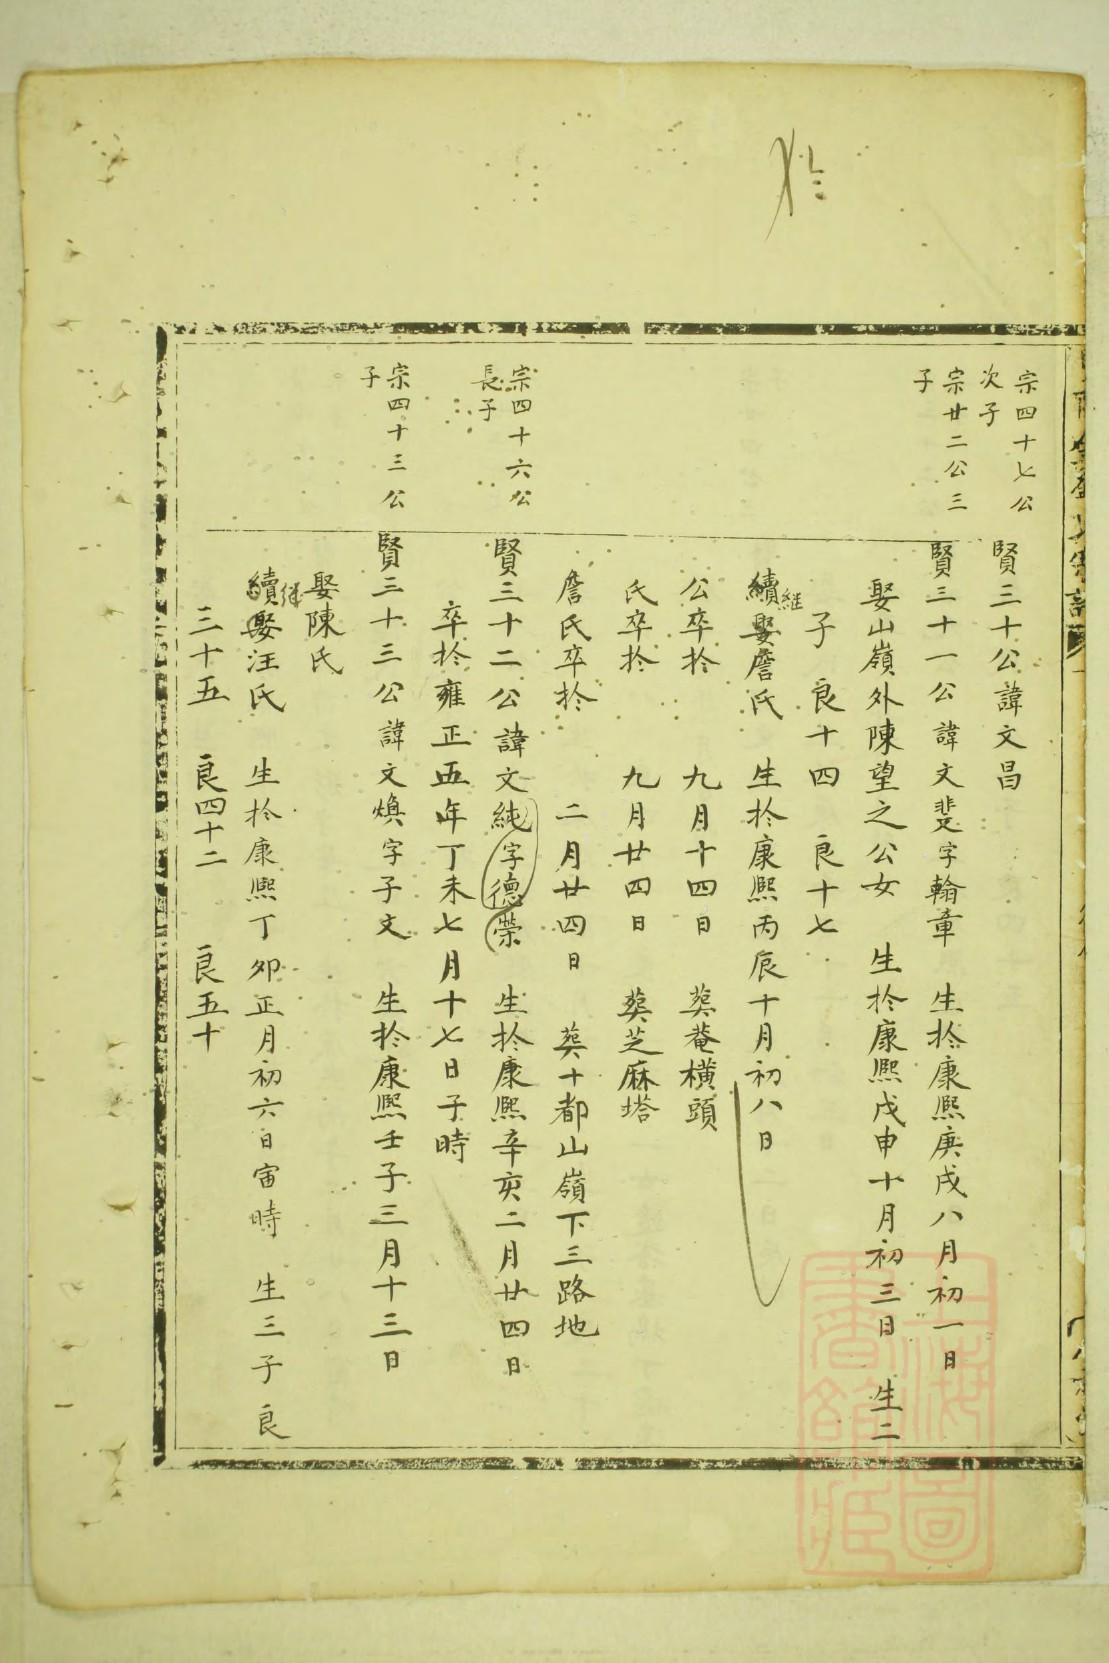 宗四十七公
次子
賢三十公諱文昌
宗廿二公三
子
賢三十一公諱文斐字翰章 生於康熙庚戌八月初一日
娶山嶺外陳望之公女 生於康熙戊申十月初三日 生二
子 良十四 良十七
續娶詹氏 生於康熙丙辰十月初八日
継
公卒於 九月十四日 葬菴橫頭
氏卒於 九月廿四日 葬芝麻塔
詹氏卒於 二月廿四日 葬十都山嶺下三路地
宗四十六公
長子
賢三十二公諱文純字德榮 生於康熙辛亥二月廿四日
卒於雍正五年丁未七月十七日子時
宗四十三公
子
賢三十三公諱文煥字子文 生於康熙壬子三月十三日
娶陳氏
継
續娶汪氏 生於康熙丁卯正月初六日寅時 生三子 良
三十五 良四十二 良五十
上海圖
書館藏